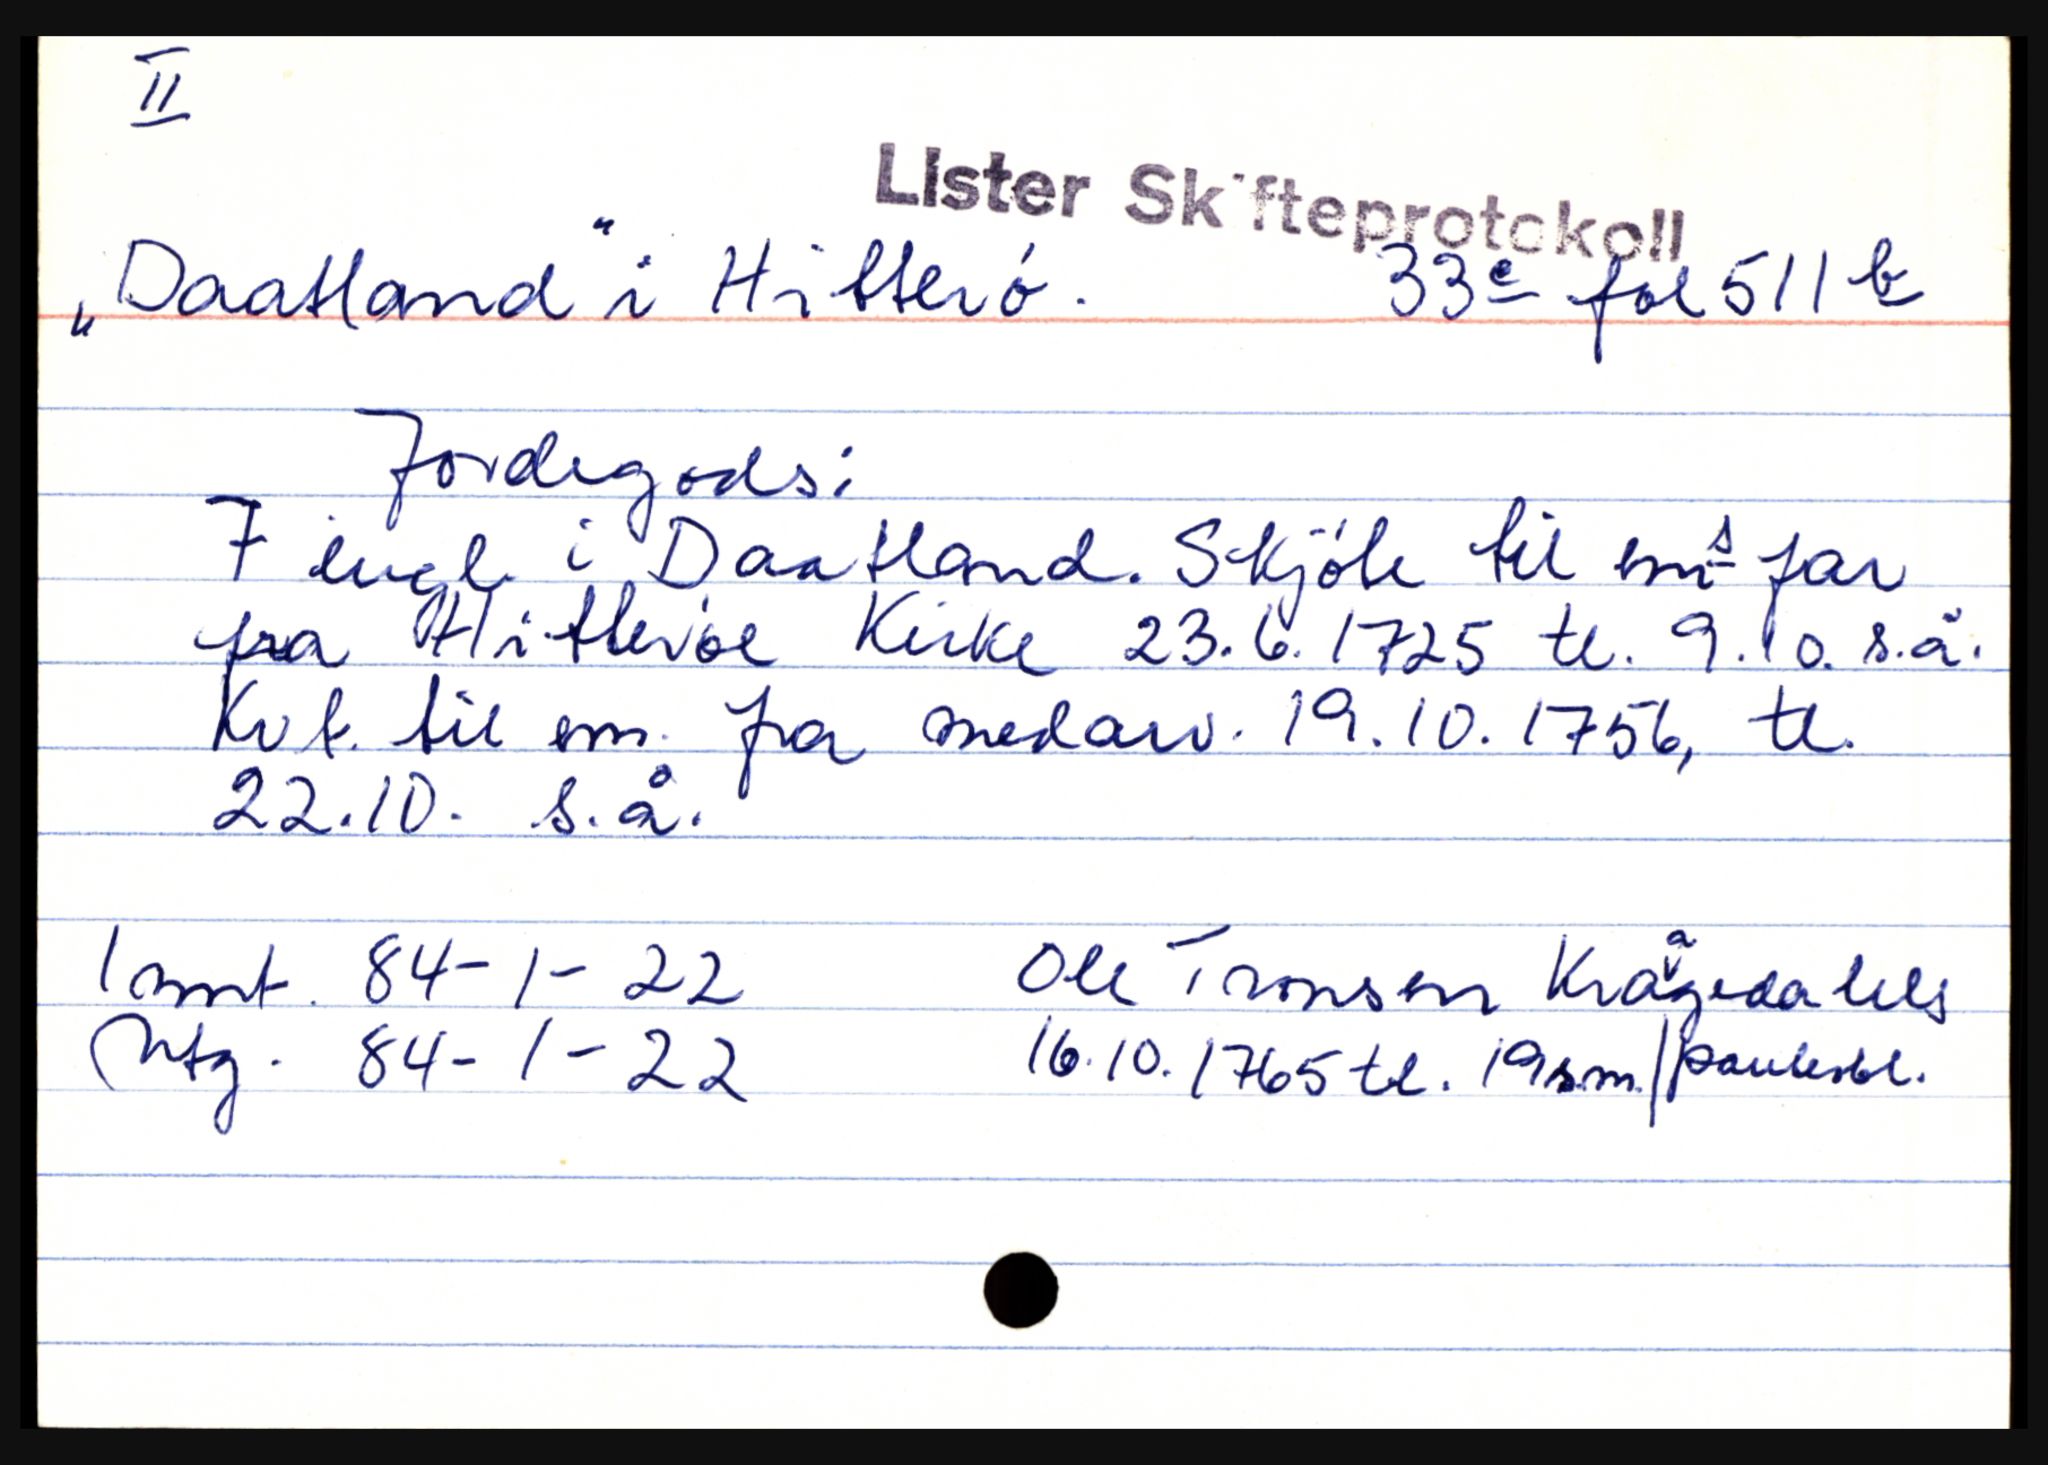 II
Lister Skifteprotokoll
„Daatland" i Hitterö. 33c fol 511 b
Jordegods:
7 engl. i Daatland. Skjöte til ems far
fra Hitteröe Kirke 23.6.1725 tl. 9.10. s.å.
Kvt. til em. fra medarv. 19.10.1756, tl.
22.10. s.å.
Innt. 84-1-22 Ole Tronsen Krågedals
Utg. 84-1-22 16.10.1765 tl. 19 s.m. / panteobl.